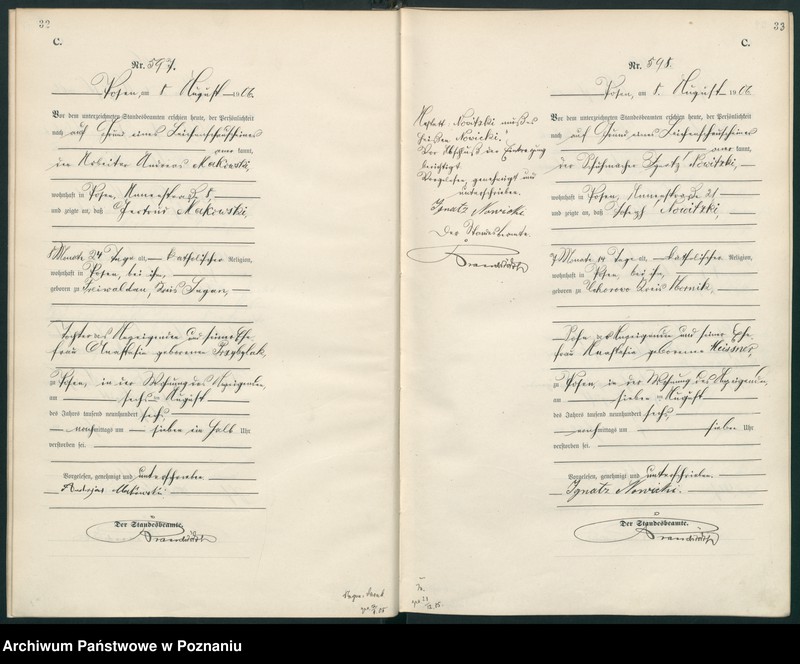 32
C.
Nr. 597.
Posen, am 8. August 1906.
Vor dem unterzeichneten Standesbeamten erschien heute, der Persönlichkeit
nach auf Grund eines Leichenschauscheines
kannt,
der Arbeiter Andreas Makowski,
wohnhaft in Posen,
und zeigte an, daß Gertrud Makowski,
Monate 24 Tage alt, katholischer Religion,
wohnhaft in Posen, bei ihm,
geboren zu Freiwaldau, Kreis Sagan,
Tochter des Anzeigenden und seiner Ehe-
frau Anastasia geborenen Przybylak,
zu Posen, in der Wohnung des Anzeigenden,
am sechsten August
des Jahres tausend neunhundert sechs
nachmittags um sieben ein halb Uhr
verstorben sei.
Vorgelesen, genehmigt und unterschrieben
Der Standesbeamte.
33
C.
Nr. 598.
Posen, am 8. August 1906.
Vor dem unterzeichneten Standesbeamten erschien heute, der Persönlichkeit
nach auf Grund eines Leichenschauscheines
kannt,
der Schuhmacher Ignatz Nowitzki,
wohnhaft in Posen,
und zeigte an, daß Joseph Nowitzki,
Monate 14 Tage alt, katholischer Religion,
wohnhaft in Posen, bei ihm,
geboren zu
Sohn des Anzeigenden und seiner Ehe-
frau Anastasia geborenen Meissner,
zu Posen, in der Wohnung des Anzeigenden,
am sieben ten August
des Jahres tausend neunhundert sechs
nachmittags um sieben Uhr
verstorben sei.
Vorgelesen, genehmigt und unterschrieben.
Ignatz Nowicki.
Der Standesbeamte.
Anstatt "Nowitzki" muß es
heißen "Nowicki".
Vor Abschluß der Eintragung
berichtigt.
Vorgelesen, genehmigt und
unterschrieben.
Ignatz Nowicki
Der Standesbeamte.
Archiwum Państwowe w Poznaniu